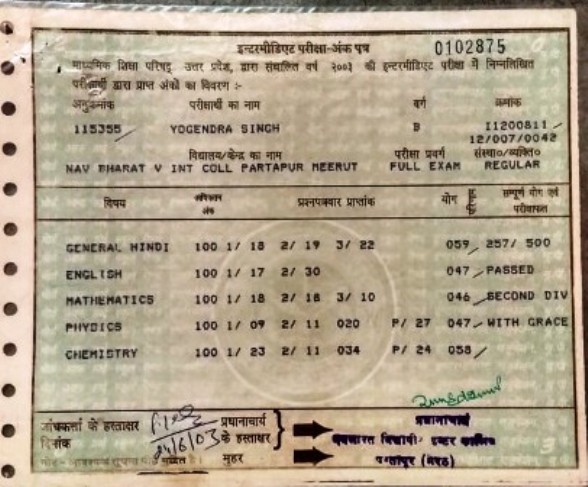 इन्टरमीडिएट परीक्षा-अंक पत्र 0102875
माध्यमिक शिक्षा परिषद् उत्तर प्रदेश, द्वारा संचालित वर्ष २००३ की इन्टरमीडिएट परीक्षा में निम्नलिखित
परीक्षार्थी द्वारा प्राप्त अंकों का विवरण :-
अनुक्रमांक परीक्षार्थी का नाम वर्ग क्रमांक
115355 YOGENDRA SINGH B I1200811
12/007/0042
विद्यालय/केन्द्र का नाम परीक्षा प्रवर्ग संस्था०/व्यक्ति०
NAV BHARAT V INT COLL PARTAPUR MEERUT FULL EXAM REGULAR
विषय अधिकतम अंक प्रश्नपत्रवार प्राप्तांक योग सम्पूर्ण योग एवं
परीक्षाफल
GENERAL HINDI 100 1/ 18 2/ 19 3/ 22 059 257/ 500
ENGLISH 100 1/ 17 2/ 30 047 PASSED
MATHEMATICS 100 1/ 18 2/ 18 3/ 10 046 SECOND DIV
PHYSICS 100 1/ 09 2/ 11 020 P/ 27 047 WITH GRACE
CHEMISTRY 100 1/ 23 2/ 11 034 P/ 24 058
जांचकर्ता के हस्ताक्षर प्रधानाचार्य
दिनांक 24/6/03 के हस्ताक्षर
मुहर
प्रधानाचार्य